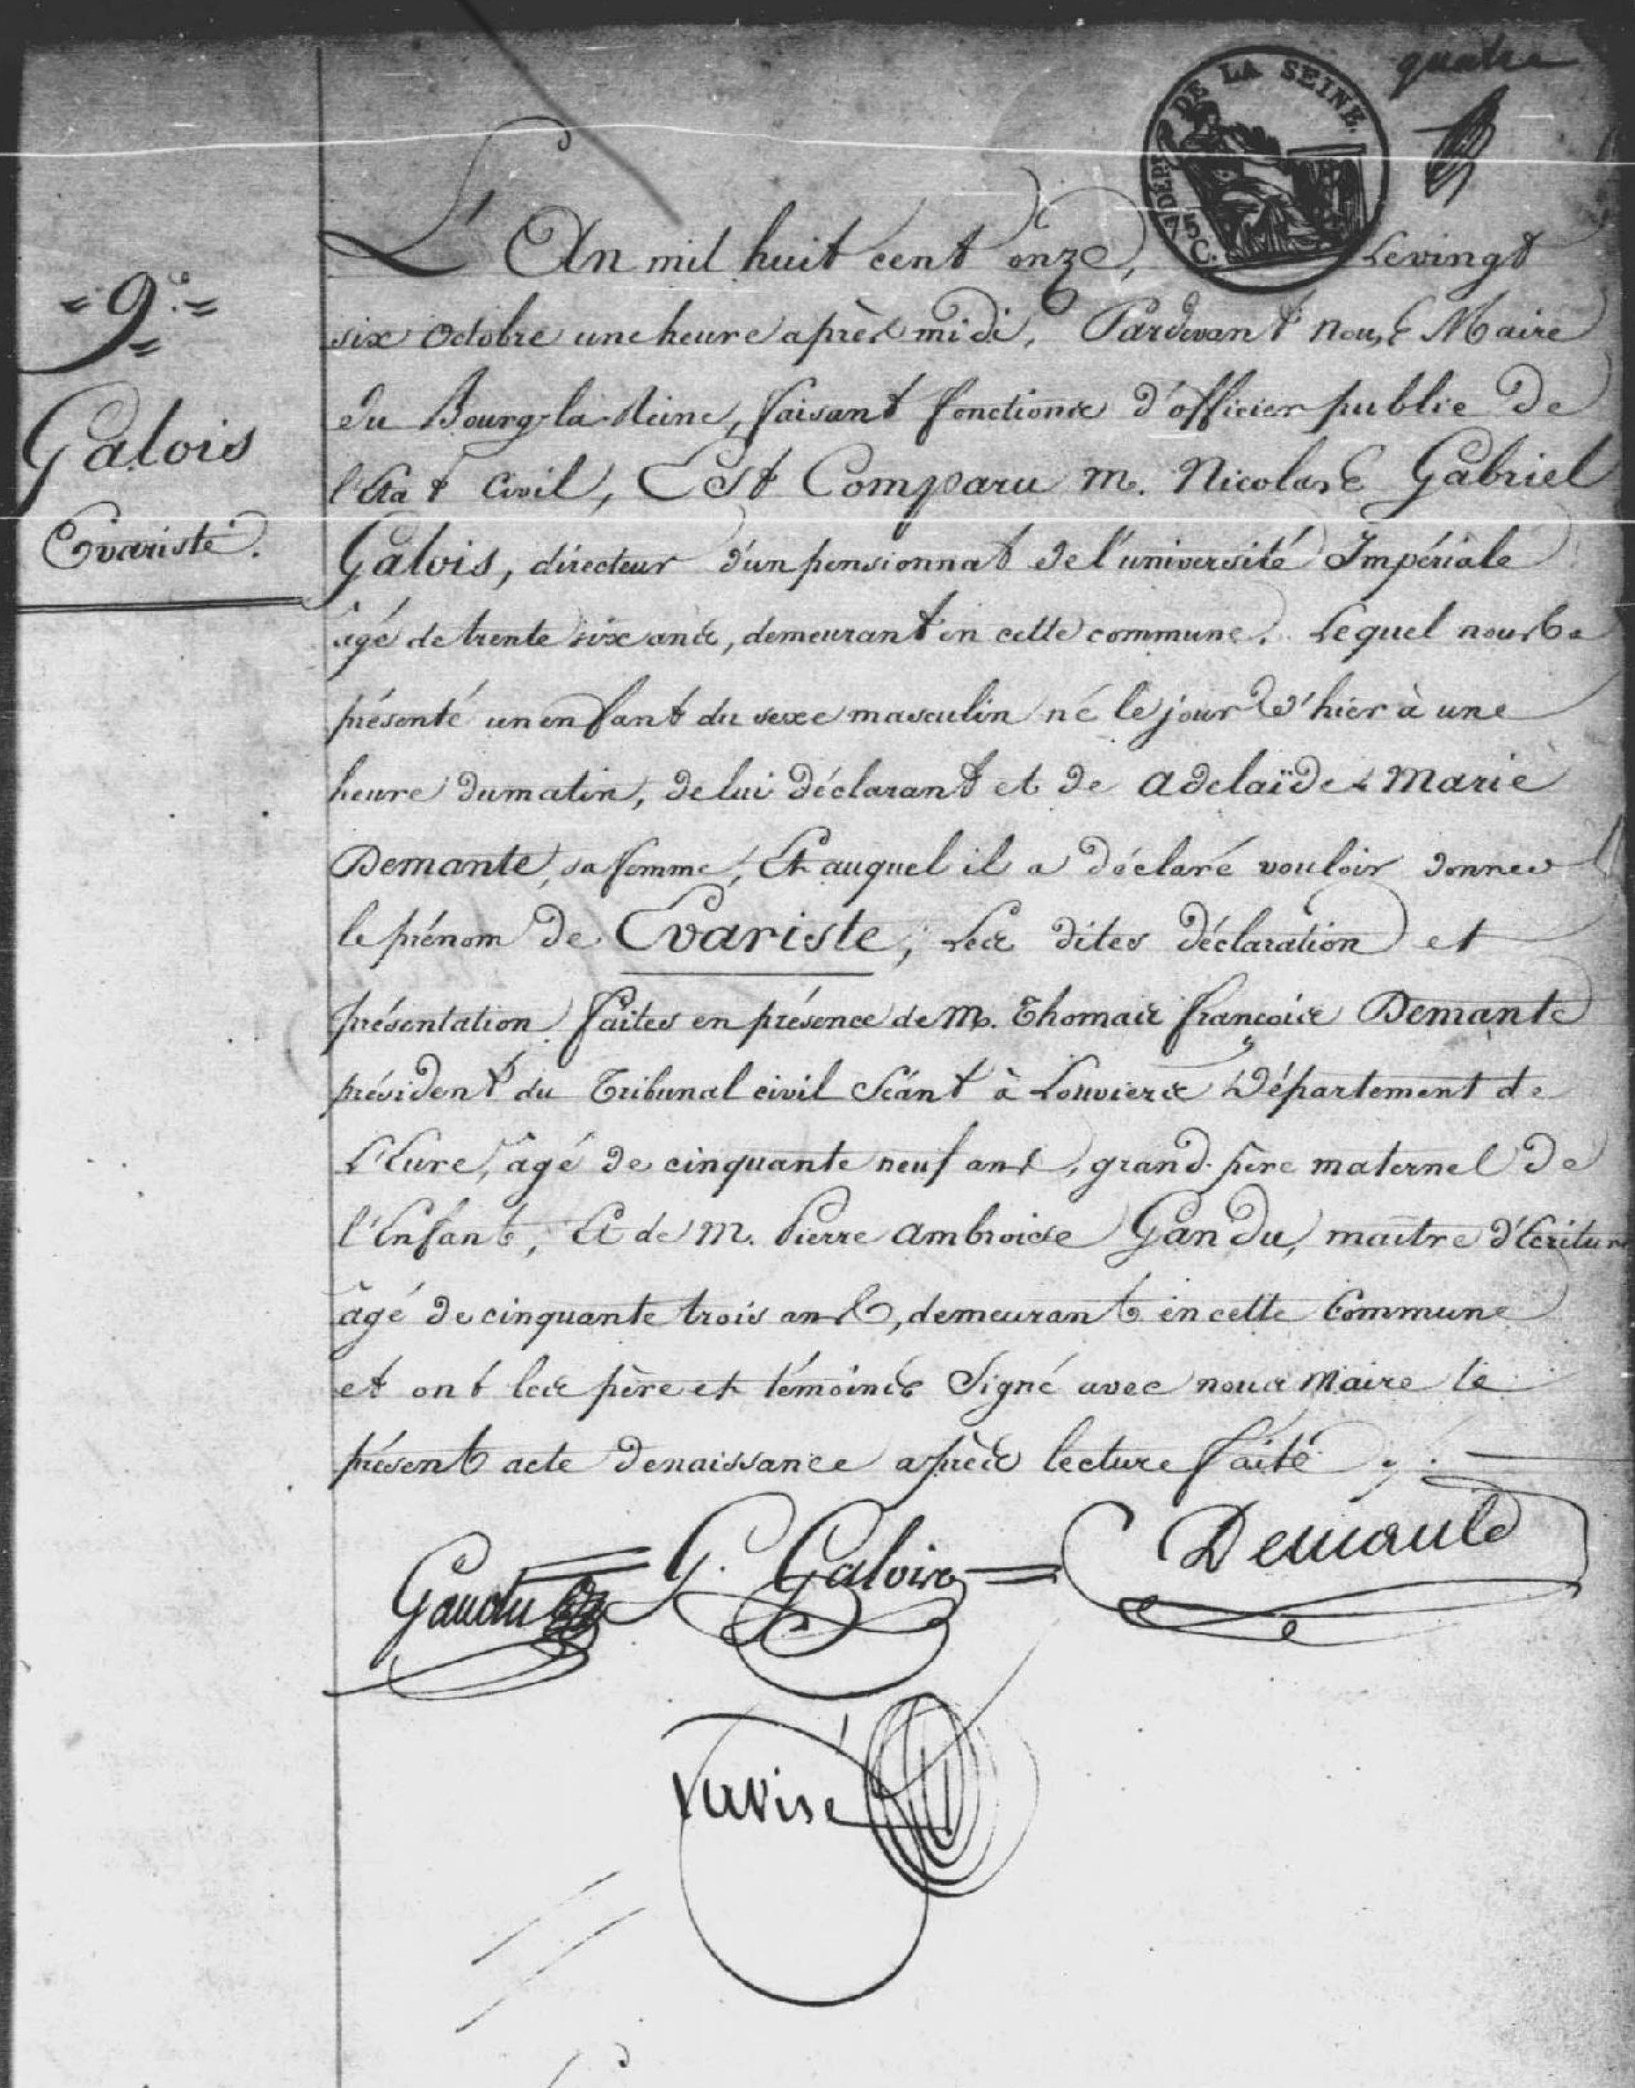 quatre
DEPT. DE LA SEINE.
75 C.
L'An mil huit cent onze, Le vingt
= 9.e =
six Octobre une heure après midi, Pardevant nous Maire
du Bourg-la-Reine, faisant fonctions d'officier public de
Galois
l'Etat Civil, Est Comparu M. Nicolas Gabriel
Evariste.
Galois, directeur d'un pensionnat de l'université Impériale
âgé de trente six ans, demeurant en cette commune. Lequel nous a
présenté un enfant du sexe masculin né le jour d'hier à une
heure du matin, de lui déclarant et de Adelaïde Marie
Demante, sa femme, Et auquel il a déclaré vouloir donner
le prénom de Evariste; Les dites déclaration et
présentation faites en présence de M. Thomas François Demante
président du Tribunal civil Séant à Louviers Département de
L'Eure, âgé de cinquante neuf ans, grand-père maternel de
l'Enfant, Et de M. Pierre Ambroise Gandu, maître d'Ecriture
âgé de cinquante trois ans, demeurant en cette Commune
et ont les père et témoins Signé avec nous Maire le
présent acte de naissance après lecture faite.
Gandu G. Galois Demante